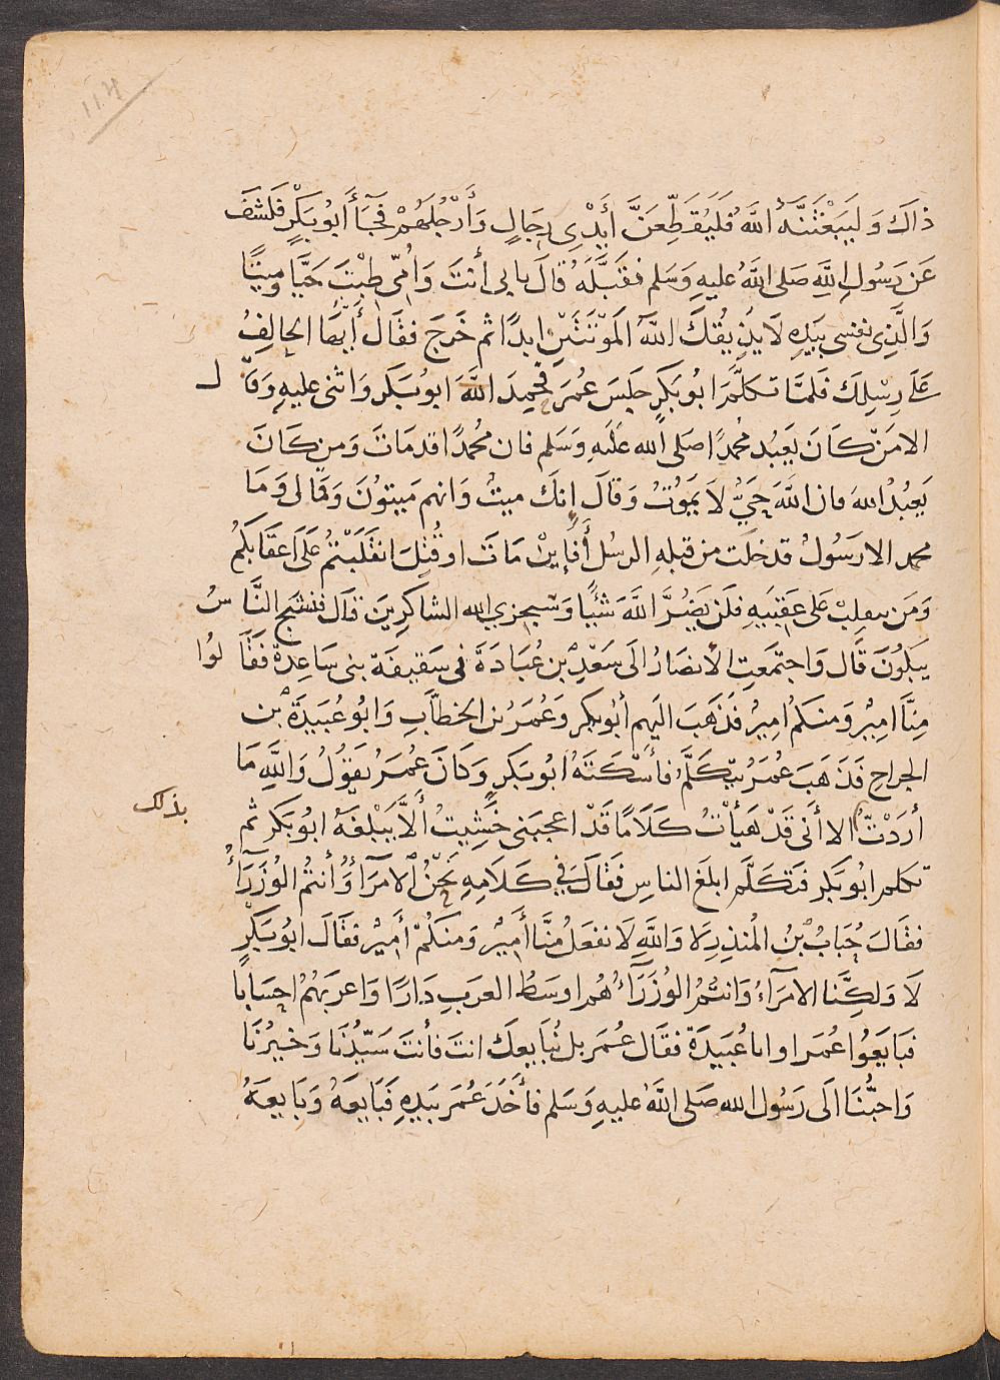 ذَاكَ وَلَيَبْعَثَنَّهُ اللَّهُ فَلَيُقَطِّعَنَّ أَيْدِى رِجَالٍ وَأَرْجُلَهُمْ فَجَآءَ أَبُو بَكْرٍ فكَشَفَ
عَن رَسُولِ اللَّهِ صَلى اللَّهُ عليهِ وَسَلم فقَبَّلَهُ قالَ بابى أنتَ وَأُمِّى طِبْتَ حَيًّا وميتًا
وَالَّذِى نفسى بيَدِهِ لَا يُذِيقُكَ اللَّهُ الْمَوْتَتَيْنِ ابدًا ثم خَرَجَ فقَالَ أَيُّهَا الحالِفُ
عَلَى رِسْلِكَ فَلمَّا تكلَّمَ ابُو بَكرٍ جلَسَ عُمَرَ فحَمِدَ اللَّهَ ابو بَكَر وَاثنى عليهِ وَقَالَ
الا مَنْ كَانَ يَعبُد مُحمدًا صَلى الله عليه وَسَلم فان محُمدًا قد مَاتَ وَمن كَانَ
يَعبُدُ اللهَ فان اللَّهَ حَىٌّ لَا يَمُوتُ وَقالَ إنكَ ميتٌ وَانهم مَيتونَ وَقالَ وَمَا
محمد الا رَسُولٌ قد خلت من قبلهِ الرسُل أَفَإِينْ مَاتَ او قُتِلَ انقَلَبْتُمْ عَلَى اعقَابكُمْ
وَمَن ينقلِبْ عَلى عَقِبَيهِ فلَن يَضُرَّ اللَّهَ شيئًا وَسَيجزي الله الشاكرِينَ قالَ فنشَج النَّاسُ
يبكونَ قَال وَاجتمَعَتِ الأنصَارُ الَى سَعْدِ بْن عُبَادَةَ فى سَقيفَة بنى سَاعِدةَ فقَالوُا
مِنَّا امِيرٌ وَمنكمْ امِيرٌ فذَهَبَ اليهِم أبُو بكر وعُمَرُ بن الخطَّابِ وَابُو عُبَيدَةَ بْن
الجراحِ فَذَهَبَ عُمَرُ يتكَلَّمُ فأَسْكَتَهُ ابُو بَكرٍ وَكَانَ عُمَرُ يقوُلُ وَاللَّهِ مَا
أَرَدْتُ الا أنى قَدْ هَيأْتُ كَلَامًا قَدْ اعجبَنى خَشِيتُ أَلَّا يَبْلغَهُ ابُو بَكر ثم
بذلك
تكلم ابُو بَكر فتَكَلَّم ابلغَ الناسِ فَقَالَ فِي كَلَامِهِ نَحْنُ الأمَرَآءُ وَأنتُم الوُزَرَآءُ
فقَالَ حُبَابُ بْنُ المُنذِرِ لَا وَاللَّهِ لَا نفعَلُ منَّا أَمِيرٌ وَمنكمْ أَمِيرٌ فقَالَ ابُو بَكْرٍ
لَا وَلَكِنَّا الامَرَآءُ وَانتُمُ الوُزَرَآءُ هُم اوسَطُ العرَبِ دَارًا وَاعربَهُمْ احسَابا
فبَايَعُوا عُمَر او ابا عُبَيدَةَ فقَال عُمَر بل نُبَايعكَ انتَ فأنتَ سَيّدُنَا وَخيرُنَا
وَاحَبُّنَا الَى رَسُول الله صَلى اللَّهُ عليهِ وَسَلم فأَخَذَ عُمَر بيَدِهِ فَبَايعَهُ وَبَايعَهُ